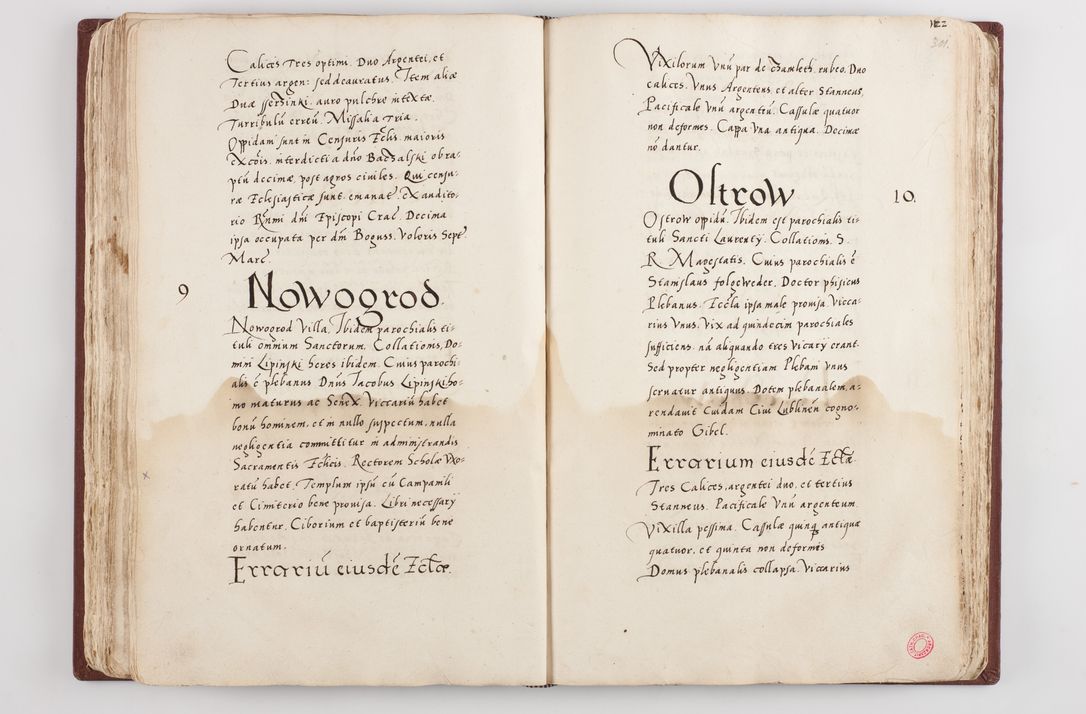 Calices Tres optimi. Duo Argentei, et
Tertius argen: sed deauratus. Item aliæ
Duæ fferzinki. auro pulchre intextæ.
Turribulũ erreũ. Missalia Tria.
Oppidani sunt in Censuris Ecłis. maioris
excõis. interdicti a dño Baczalski obra⸗
ptũ decimæ. post agros ciuiles. Qui censu⸗
ræ Ecclesiasticæ sunt emanat. ex audito⸗
rio Rñmi dñi Episcopi Crac. Decima
ipsa occupata per dñi Boguss. Valoris Sept.
Marc.
9
Nowogrod.
Nowogrod Villa. Ibidem parochialis ti⸗
tuli omnium Sanctorum. Collationis, Do⸗
mini Lipinski heres ibidem. Cuius parochi⸗
alis ẽ plebanus Dñus Jacobus Lipinski ho⸗
mo maturus ac Senex. Viccariũ habet
bonũ hominem, et in nullo suspectum. nulla
negligentia committitur in administrandis
Sacramentis Ecłicis. Rectorem Scholæ Vxo⸗
ratũ habet. Templum ipsũ cũ Campanili
et Cimiterio bene prouisa. Libri necessarij
habentur. Ciborium et baptisteriũ bene
ornatum.
Errariũ eiusdẽ Ecłæ.
122
301.
Vixilorum Vnũ par de czambeth. rubeo. Duo
calices. Vnus Argenteus, et alter Stanneus,
Pacificale Vnũ argenteũ. Cassulæ quatuor
non deformes. Cappa Vna antiqua. Decimæ
nõ dantur.
Ostrow
10.
Ostrow oppidũ. Ibidem est parochialis ti⸗
tuli Sancti Laurentij. Collationis. S.
R. Magestatis. Cuius parochialis ẽ
Stanislaus folgeweder. Doctor phisicus
Plebanus. Eccła ipsa male prouisa. Vicca⸗
rius Vnus. Vix ad quindecim parochiales
sufficiens. nã aliquando tres Vicarij erant.
Sed propter negligentiam Plebani Vnus
seruatur antiquus. Dotem plebanalem, a⸗
rendauit Cuidam Ciui Lublineñ cogno⸗
minato Gibel.
Errarium eiusdẽ Ecłæ.
Tres Calices, argentei duo. et tertius
Stanneus. Pacificale Vnũ argenteum.
Vixilla pessima. Cassulæ quinq̃ antiquæ
quatuor. et quinta non deformis
Domus plebanalis collapsa. Viccarius